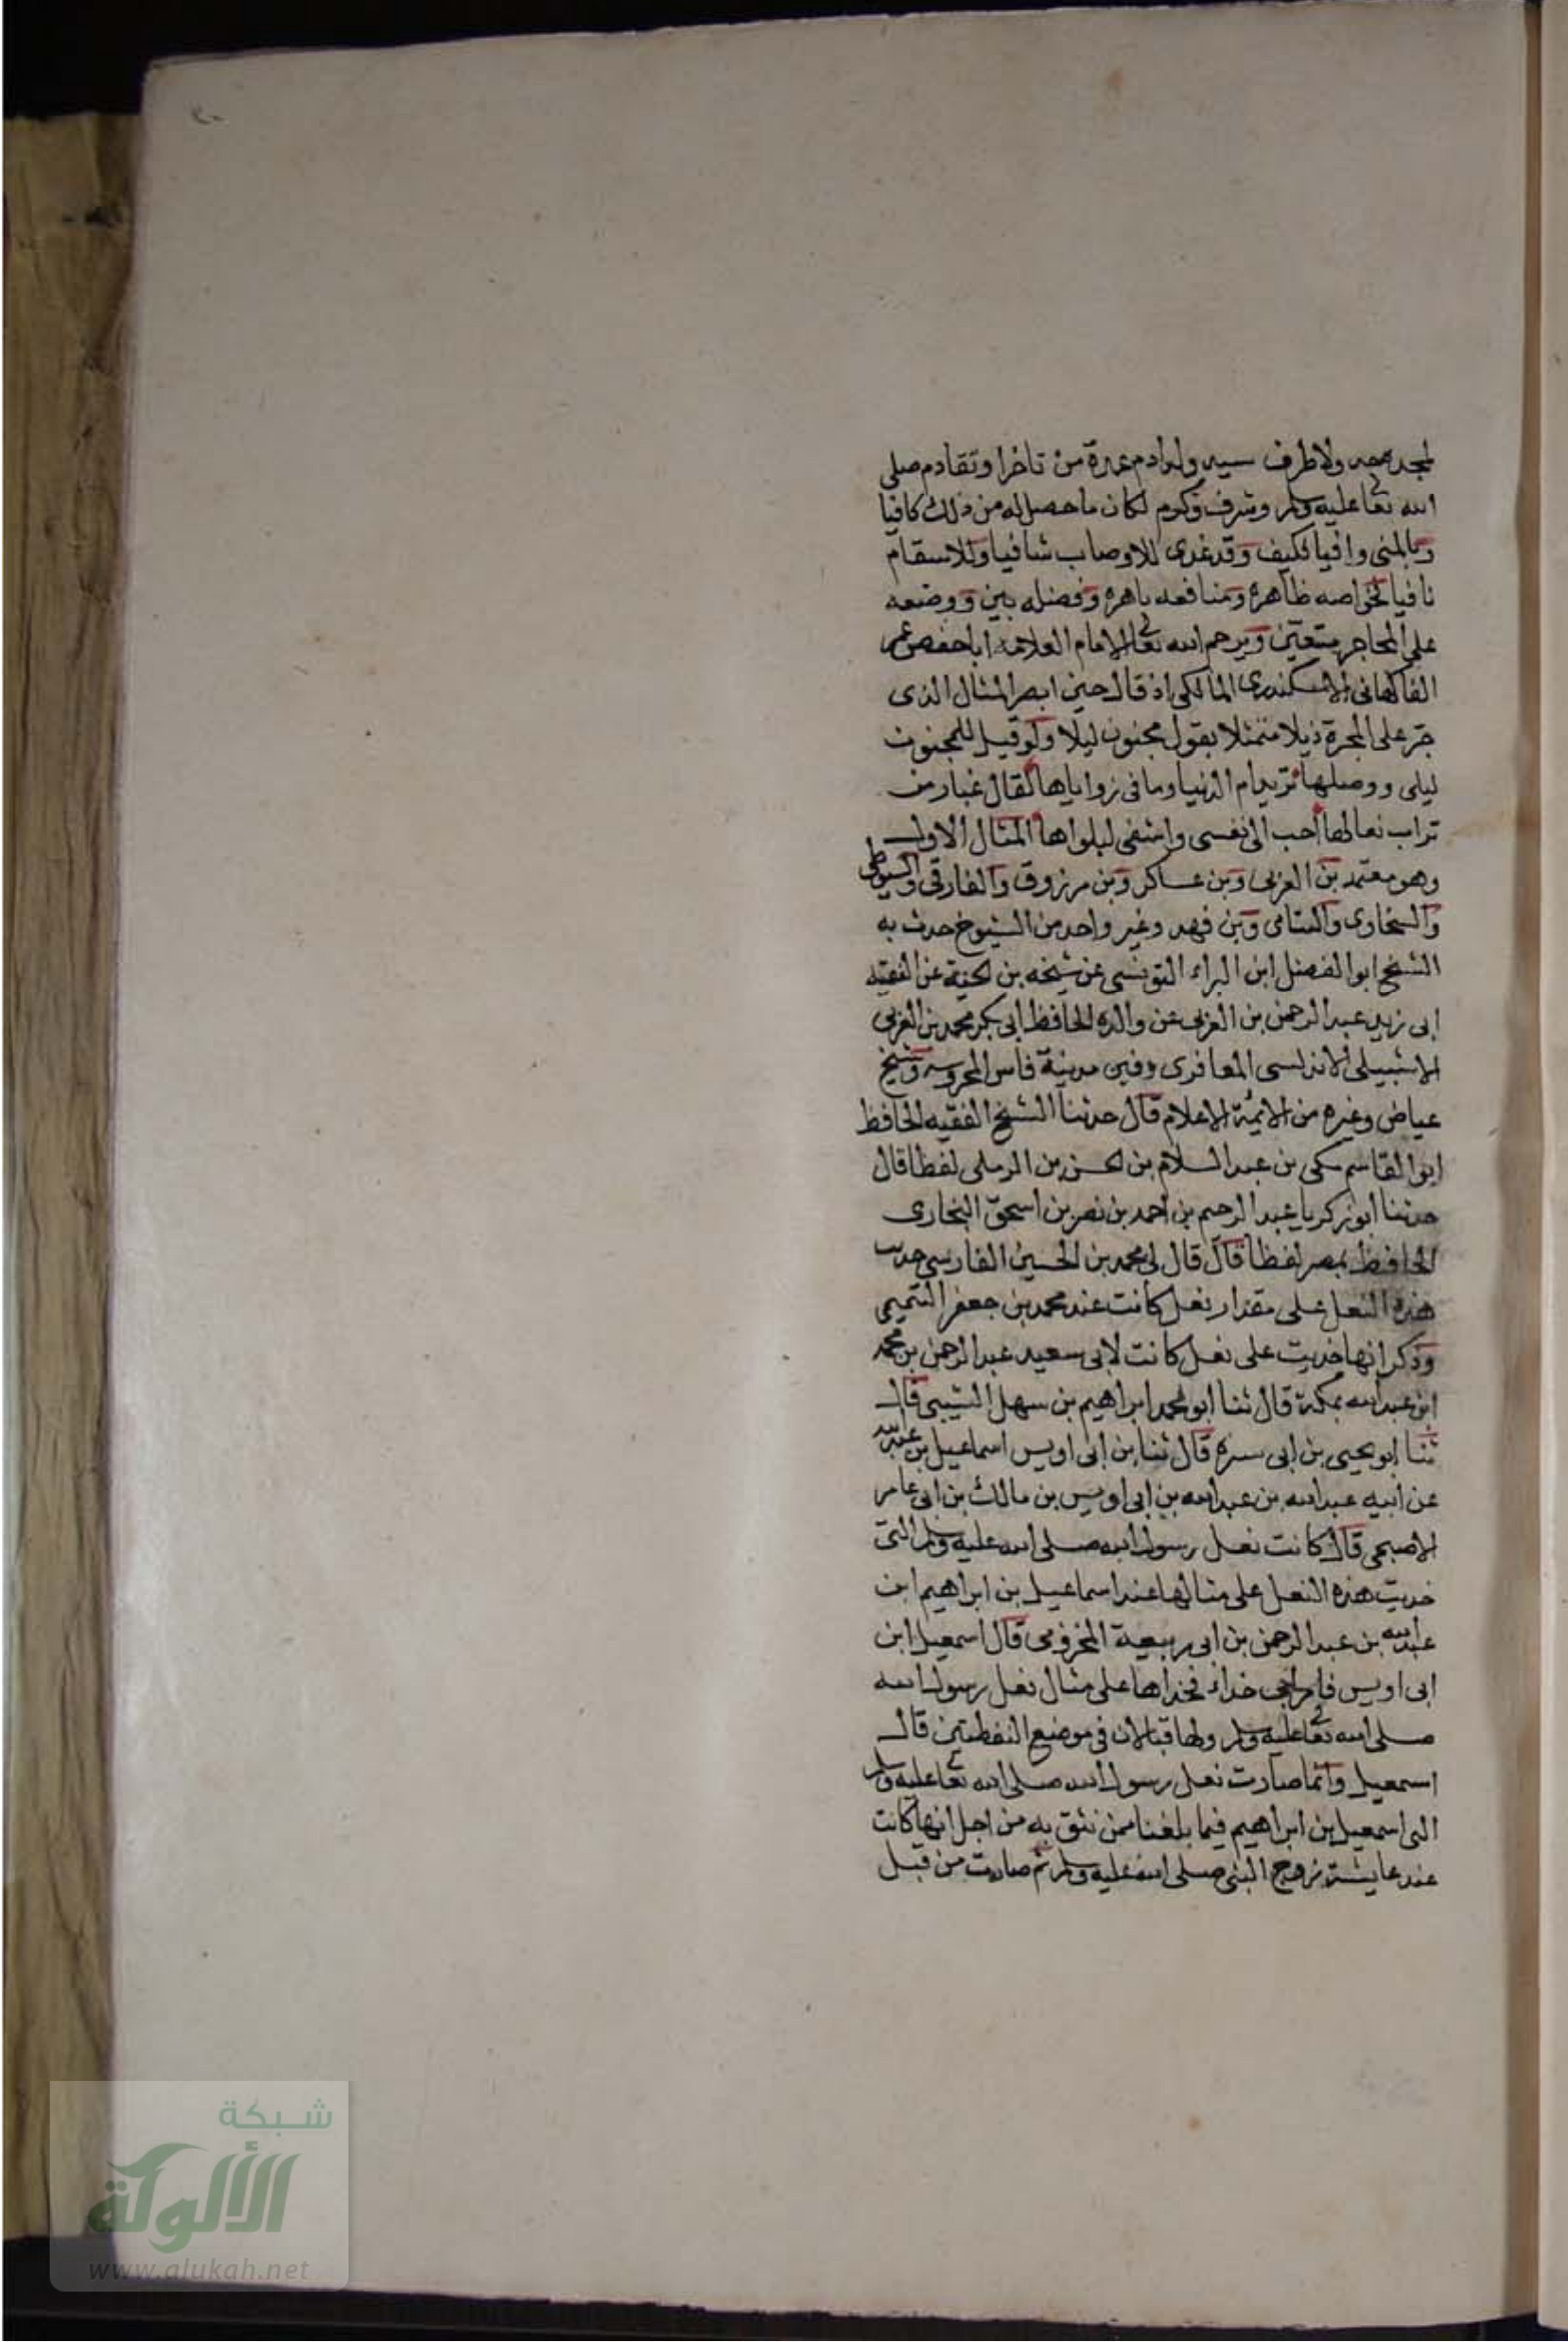 ٣٠
لمجد ولا طرف سيد ولد ادم عمدة من تاخرا وتقادم صلى
الله تعالى عليه وسلم وشرف وكرم لكان ما حصل له من ذلك كافيا
وبالمنى وافيا فكيف وقد غدى للاوصاب شافيا وللاسقام
نافيا فخواصه ظاهره ومنافعه باهره وفضله بين ووضعه
على المحاجر متعين ويرحم الله تعالى الامام العلامة ابا حفص عمر
الفاكهانى الاسكندرى المالكى اذ قال حين ابصر المثال الذى
جر على المجرة ذيلا متمثلا بقول مجنون ليلا ولو قيل للمجنون
ليلى ووصلها تريد ام الدنيا وما فى زواياها لقال غبار من
تراب نعالها احب الى نفسى واشفى لبلواها المثال الاول
وهو معتمد بن العربى وبن عساكر وبن مرزوق والفارقى والسيوطى
والسخاوى والتتاءى وبن فهد وغير واحد من الشيوخ حدث به
الشيخ ابو الفضل ابن البراء التونسى عن شيخه بن الحية عن الفقيه
ابى زيد عبد الرحمن بن العربى عن والده الحافظ ابى بكر محمد بن العربى
الاشبيلى الاندلسى المعافرى دفين مدينة فاس المحروسه وشيخ
عياض وغيره من الايمة الاعلام قال حدثنا الشيخ الفقيه الحافظ
ابو القاسم مكى بن عبد السلام بن الحسن بن الرملى لفظا قال
حدثنا ابو زكريا عبد الرحيم بن احمد بن نصر بن اسحق البخارى
الحافظ بمصر لفظا قال قال لى محمد بن الحسين الفارسى حديت
هذه النعل على مقدار نعل كانت عند محمد بن جعفر التميمى
وذكر انها حديت على نعل كانت لابى سعيد عبد الرحمن بن محمد
ابن عبد الله بمكة قال ثنا ابو محمد ابراهيم بن سهل الشيبى قال
ثنا ابو يحيى بن ابى سره قال ثنا بن ابى اويس اسماعيل بن عبد الله
عن ابيه عبد الله بن عبد الله بن ابى اويس بن مالك بن ابى عامر
الاصبحى قال كانت نعل رسول الله صلى الله عليه وسلم التى
خديت هذه النعل على مثالها عند اسماعيل بن ابراهيم ابن
عبد الله بن عبد الرحمن بن ابى ربيعة المخزومى قال اسمعيل ابن
ابى اويس فامر ابى خداء فخداها على مثال نعل رسول الله
صلى الله تعالى عليه وسلم ولها قبالان فى موضع النقطتين قال
اسمعيل وانما صارت نعل رسول الله صلى الله تعالى عليه وسلم
الى اسمعيل بن ابراهيم فيما بلغنا ممن نثق به من اجل انها كانت
عند عايشة زوج النبى صلى الله عليه وسلم ثم صارت من قبل
شبكة
الألوكة
www.alukah.net